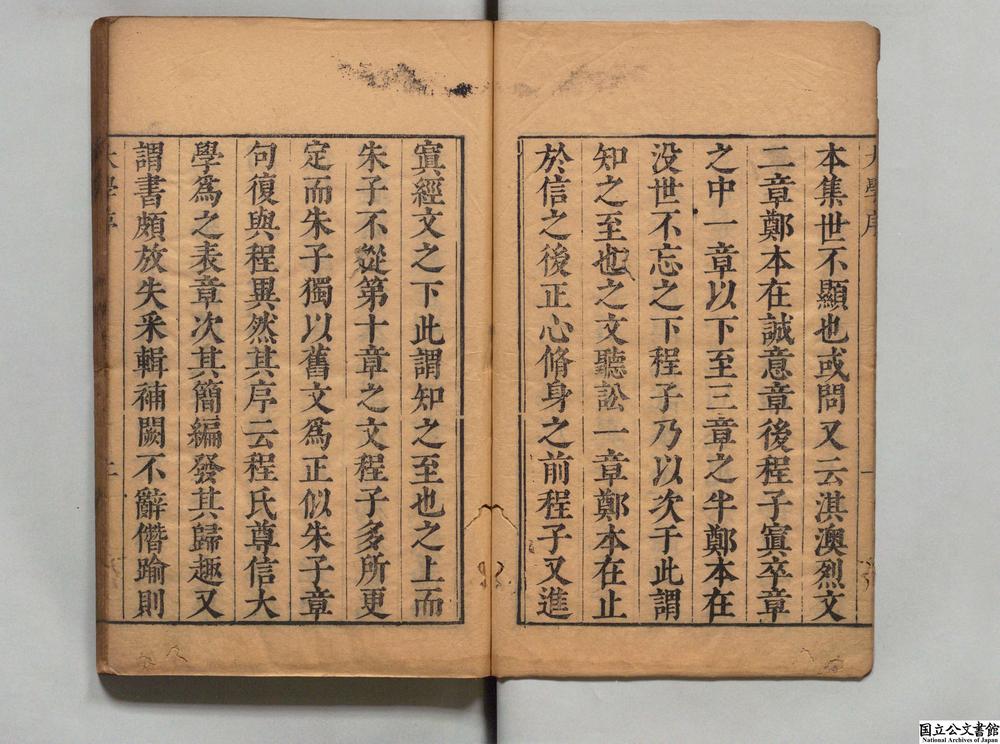 本集世不顯也或問又云淇澳烈文
二章鄭本在誠意章後程子寘卒章
之中一章以下至三章之半鄭本在
没世不忘之下程子乃以次于此謂
知之至也之文聽訟一章鄭本在止
於信之後正心脩身之前程子又進
寘經文之下此謂知之至也之上而
朱子不從第十章之文程子多所更
定而朱子獨以舊文爲正似朱子章
句復與程異然其序云程氏尊信大
學爲之表章次其簡編發其歸趣又
謂書頗放失釆輯補闕不辭僭踰則
大學序
二
国立公文書館
National Archives of Japan